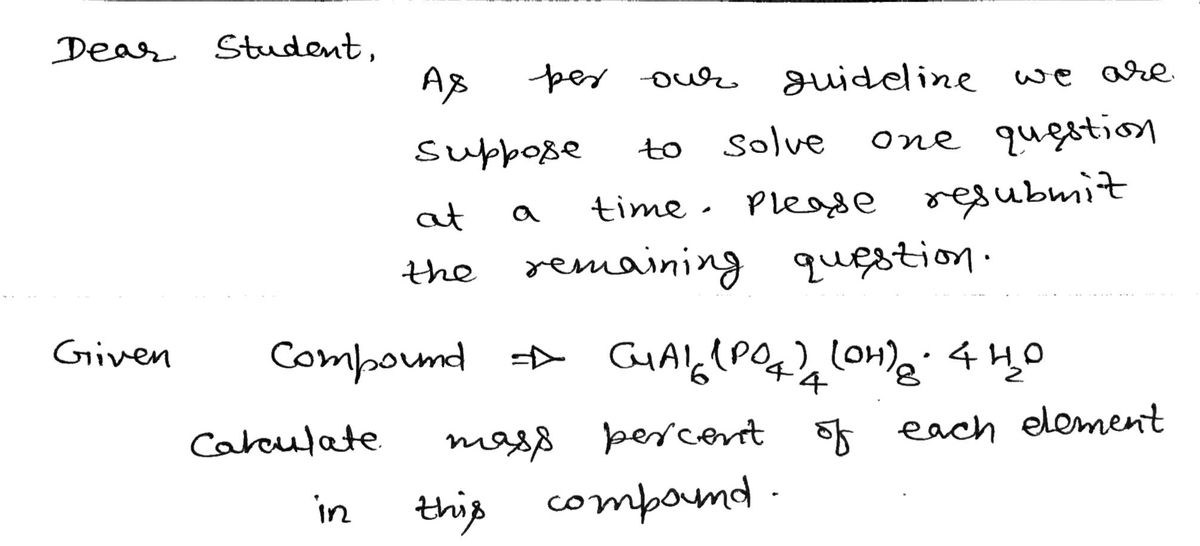 Dear Student,
As per our guideline we are
suppose to solve one question
at a time. Please resubmit
the remaining question.
Given Compound ⇒ CuAl₆(PO₄)₄(OH)₈·4H₂O
Calculate mass percent of each element
in this compound.